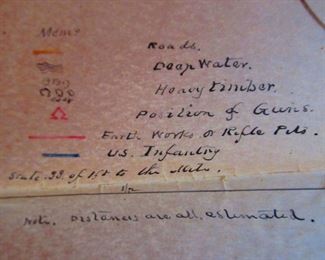 Memo
Roads.
Deep Water.
Heavy Timber.
Position of Guns.
Earth Works or Rifle Pits.
U.S. Infantry
Scale. of to the Mile.
Note. Distances are all estimated.